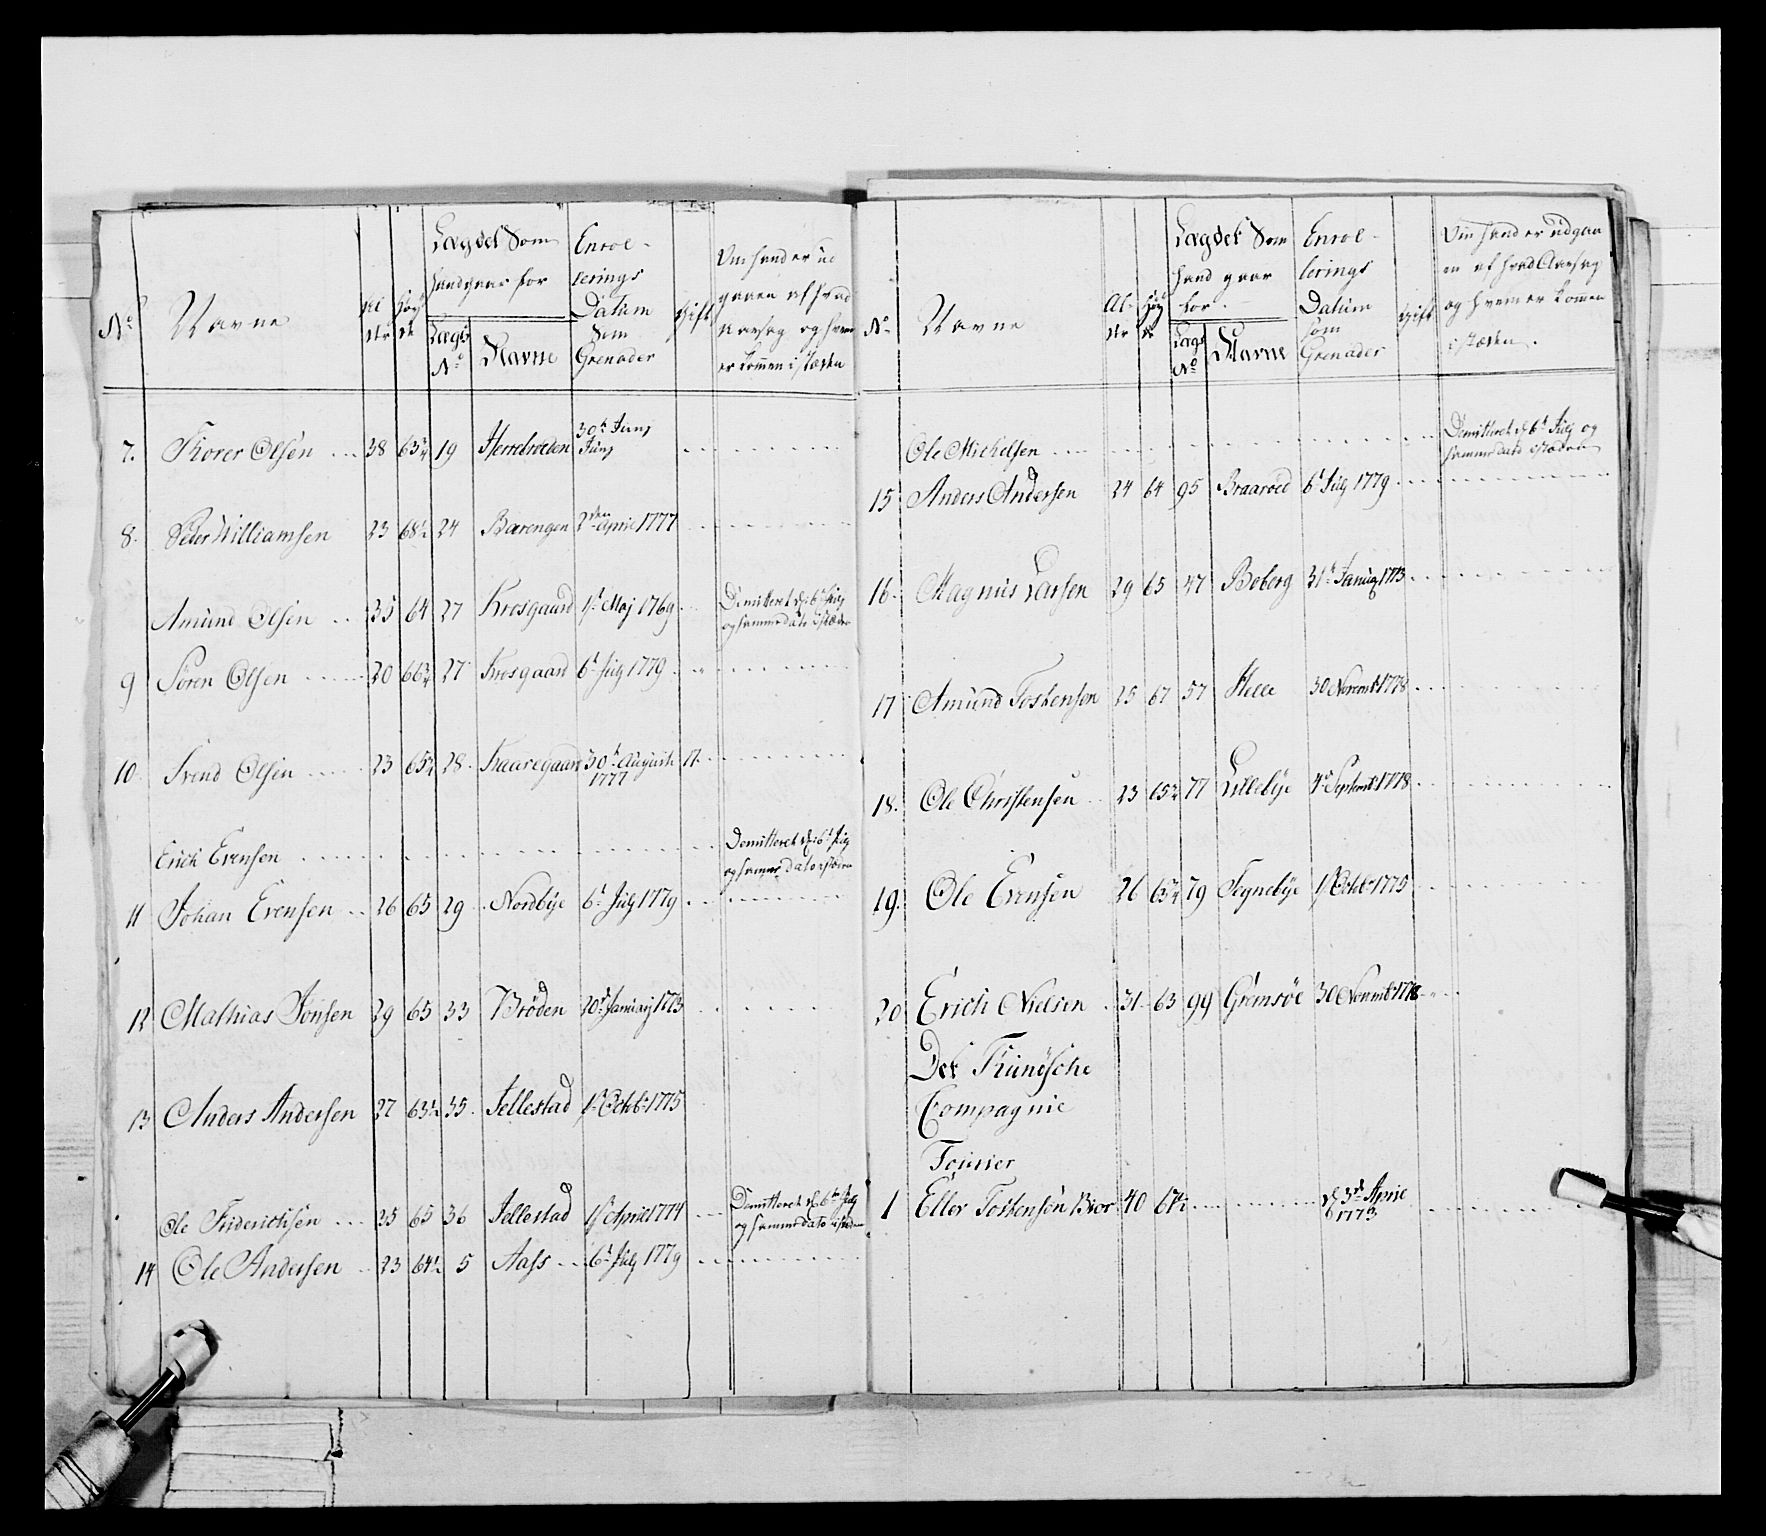 No Navne Al der Høy de Lægdet Som hand gaar for Lægs No Navne Enrol- lerings Datum Som Grenader Gift Om hand er ud gaaen af hvad Aarsag og hvem er kommen i stæden
7. Thorer Olsen 38 63¾ 19 Herrebrøeden 30te Junj Junj
8. Peder Williamsen 23 68½ 24 Barengen 2den April 1777
Amund Olsen 35 64 27 Krosgaard 1st Maj 1769 Demitteret d: 6t Julj
og samme dato i stæden
9 Søren Olsen 20 66¾ 27 Krosgaard 6t Julj 1779
10. Svend Olsen 23 65¾ 28 Kaaregaard 30te August 1777 1.
Erich Evensen Demitteret d: 6t Julj
og samme dato i stæden
11 Johan Evensen 26 65 29 Nordbye 6t Julj 1779
12 Mathias Jonsen 29 65 33 Brøden 20d Januarj 1773
13 Anders Andersen 27 63½ 35 Jellestad 1st Octbr 1775
Ole Friderichsen 25 65 36 Jellestad 1st April 1774 Demitteret d: 6te Julj
og samme dato i stæden
14 Ole Andersen 23 64½ 5 Aass 6t Julj 1779
No Navne Al der Høy de Lægdet Som hand gaar for Lægs No Navne Enrol- lerings Datum Som Grenader Gift Om hand er udgaa en af hvad Aarsag og hvem er komen i stæden.
Ole Michelsen Demitteret d: 6t Julj og
samme dato i stæden
15 Anders Andersen 24 64 95 Braaroed 6t Julj 1779
16 Magnus Larsen 29 65 47 Boberg 31te Januarj 1773
17 Amund Tostensen 25 67 57 Helle 30 Novembr 1778
18. Ole Christensen 23 65¾ 77 Lillebye 4de Septembr 1778
19. Ole Evensen 26 65¾ 79 Tegnebye 1st Octbr 1775
20 Erich Nielsen 31 63 99 Gremsøe 30 Novembr 1778
Det Thunøsche
Compagnie
Fourier
1 Eller Tostensen Bior 40 67½ d: 3d April
1773